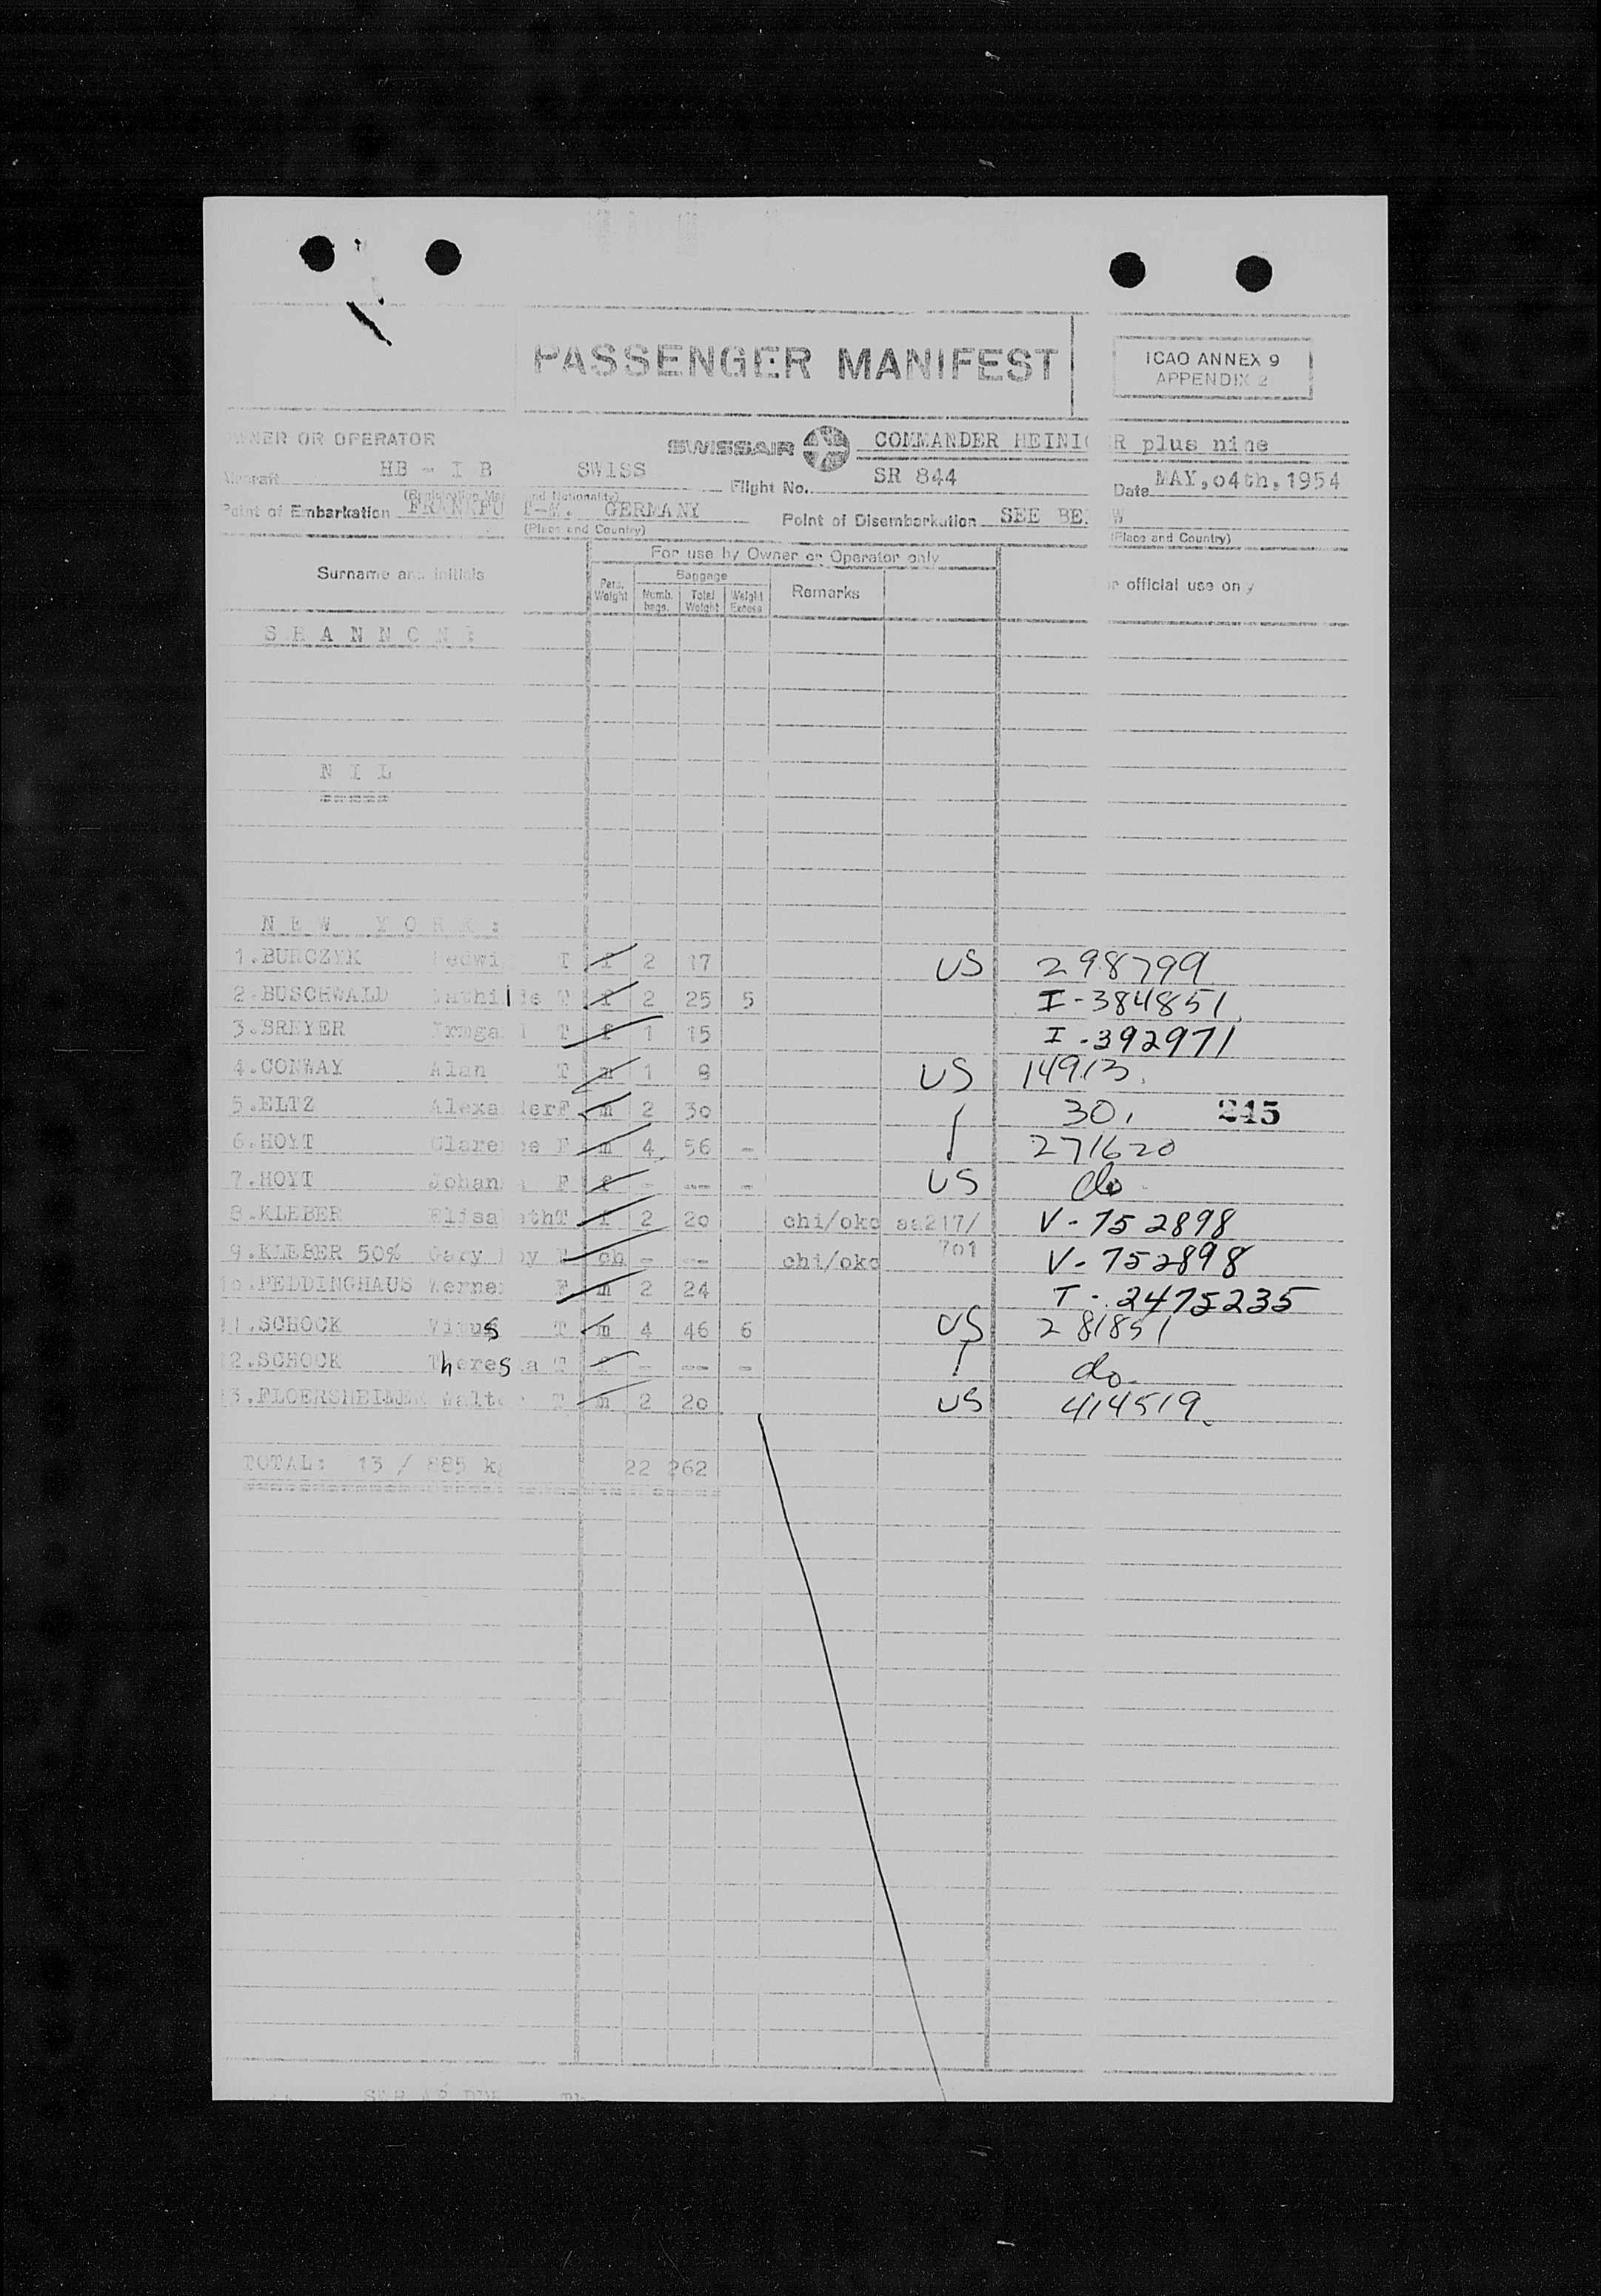 PASSENGER MANIFEST
ICAO ANNEX 9
APPENDIX 2
OWNER OR OPERATOR SWISSAIR COMMANDER HEINI R plus nine
Aircraft HB - I B SWISS Flight No. SR 844 Date MAY, 04th, 1954
(Registration Mar and Nationality)
Point of Embarkation FRANKFU T-M. GERMANY Point of Disembarkation SEE BE W
(Place and Country) (Place and Country)
For use by Owner or Operator only
Surname and initials Pers. Weight Baggage Numb. bags. Total Weight Weight Excess Remarks r official use only
S H A N N O N :
N I L
N E W Y O R K :
1.BURCZYK Hedwi T f 2 17 US 298799
2.BUSCHWALD Mathil de T f 2 25 5 I-384851
3.BREYER Irmga T f 1 15 I-392971
4.CONWAY Alan T m 1 8 US 14913
5.ELTZ Alexa der F m 2 30 30, 245
6.HOYT Clare ce F m 4 56 - 271620
7.HOYT Johan F f - --- - US do
8.KLEBER Elisa ethT f 2 20 chi/okc aa217/ V-752898
9.KLEBER 50% Gary oy T ch - --- chi/okc 701 V-752898
10.PEDDINGHAUS Werne F m 2 24 T-2475235
11.SCHOCK Vitus T m 4 46 6 US 281851
2.SCHOCK Theresa T f - --- - do
3.FLOERSHEIMER Walt T m 2 20 US 414519
TOTAL: 13 / 885 k 22 262